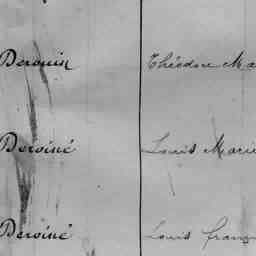 Derouin Théodore Ma
Deroiné Louis Marie
Deroiné Louis Franç